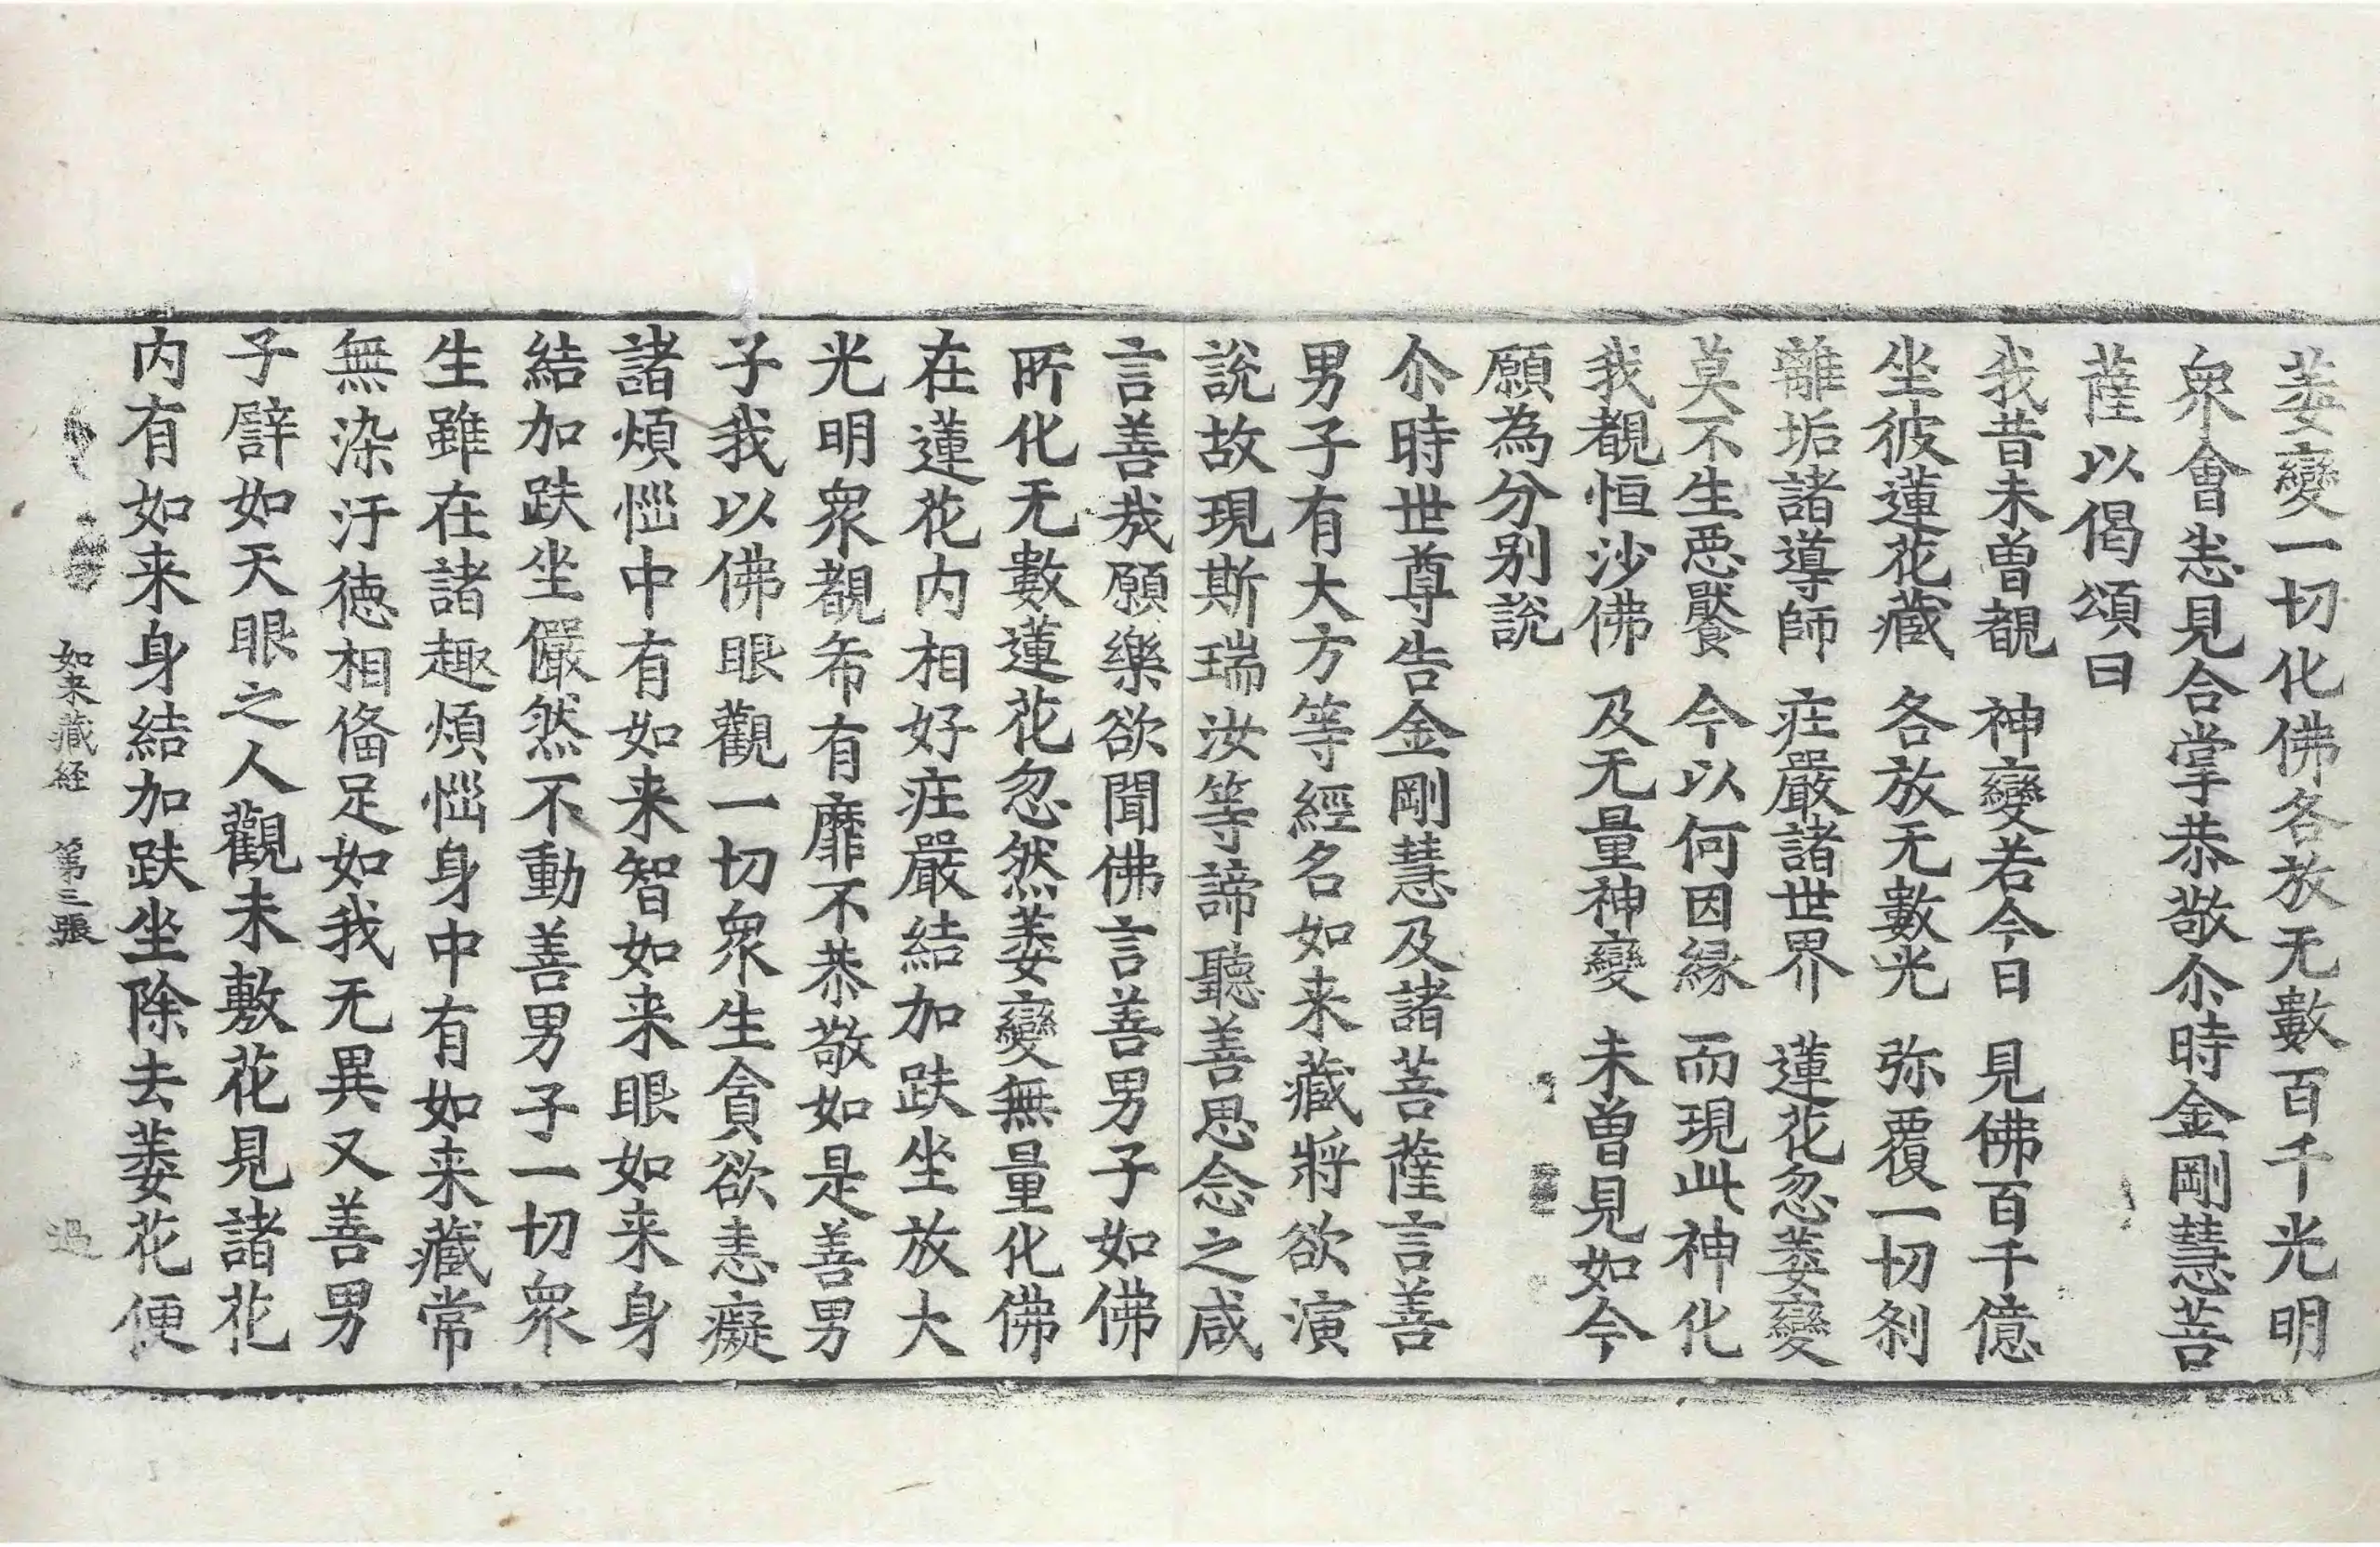 萎變一切化佛各放无數百千光明
衆會悉見合掌恭敬尒時金剛慧菩
薩以偈頌曰
我昔未曾覩　神變若今日　見佛百千億
坐彼蓮花藏　各放无數光　弥覆一切刹
離垢諸導師　庄嚴諸世界　蓮花忽萎變
莫不生惡猒　今以何因縁　而現此神化
我覩恒沙佛　及无量神變　未曾見如今
願為分别説
尒時世尊告金剛慧及諸菩薩言善
男子有大方等經名如来藏將欲演
説故現斯瑞汝等諦聽善思念之咸
言善哉願樂欲聞佛言善男子如佛
所化无數蓮花忽然萎變無量化佛
在蓮花内相好庄嚴結加趺坐放大
光明衆覩希有靡不恭敬如是善男
子我以佛眼觀一切衆生貪欲恚癡
諸煩惱中有如来智如来眼如来身
結加趺坐儼然不動善男子一切衆
生雖在諸趣煩惱身中有如来藏常
無染汙徳相俻足如我无異又善男
子譬如天眼之人觀未敷花見諸花
内有如来身結加趺坐除去萎花便
如来藏経　第三張　過